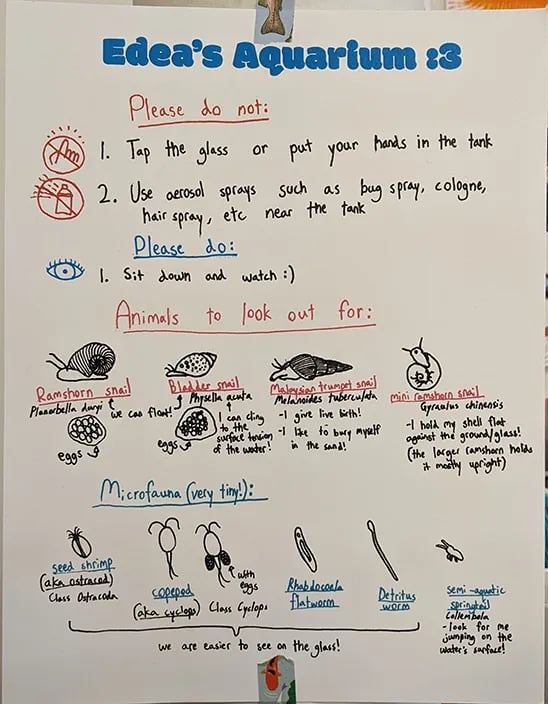 Edea's Aquarium :3
Please do not:
1. Tap the glass or put your hands in the tank
2. Use aerosol sprays such as bug spray, cologne,
hair spray, etc near the tank
Please do:
1. Sit down and watch :)
Animals to look out for:
Ramshorn snail
Planorbella duryi
we can float!
eggs
Bladder snail
Physella acuta
I can cling
to the
surface tension
of the water!
eggs
Malaysian trumpet snail
Melanoides tuberculata
-I give live birth!
-I like to bury myself
in the sand!
mini ramshorn snail
Gyraulus chinensis
-I hold my shell flat
against the ground/glass!
(the larger ramshorn holds
it mostly upright)
Microfauna (very tiny!):
seed shrimp
(aka ostracod)
Class Ostracoda
copepod
(aka cyclops)
Class Cyclops
with
eggs
Rhabdocoela
flatworm
Detritus
worm
semi-aquatic
springtail
Collembola
-look for me
jumping on the
water's surface!
we are easier to see on the glass!